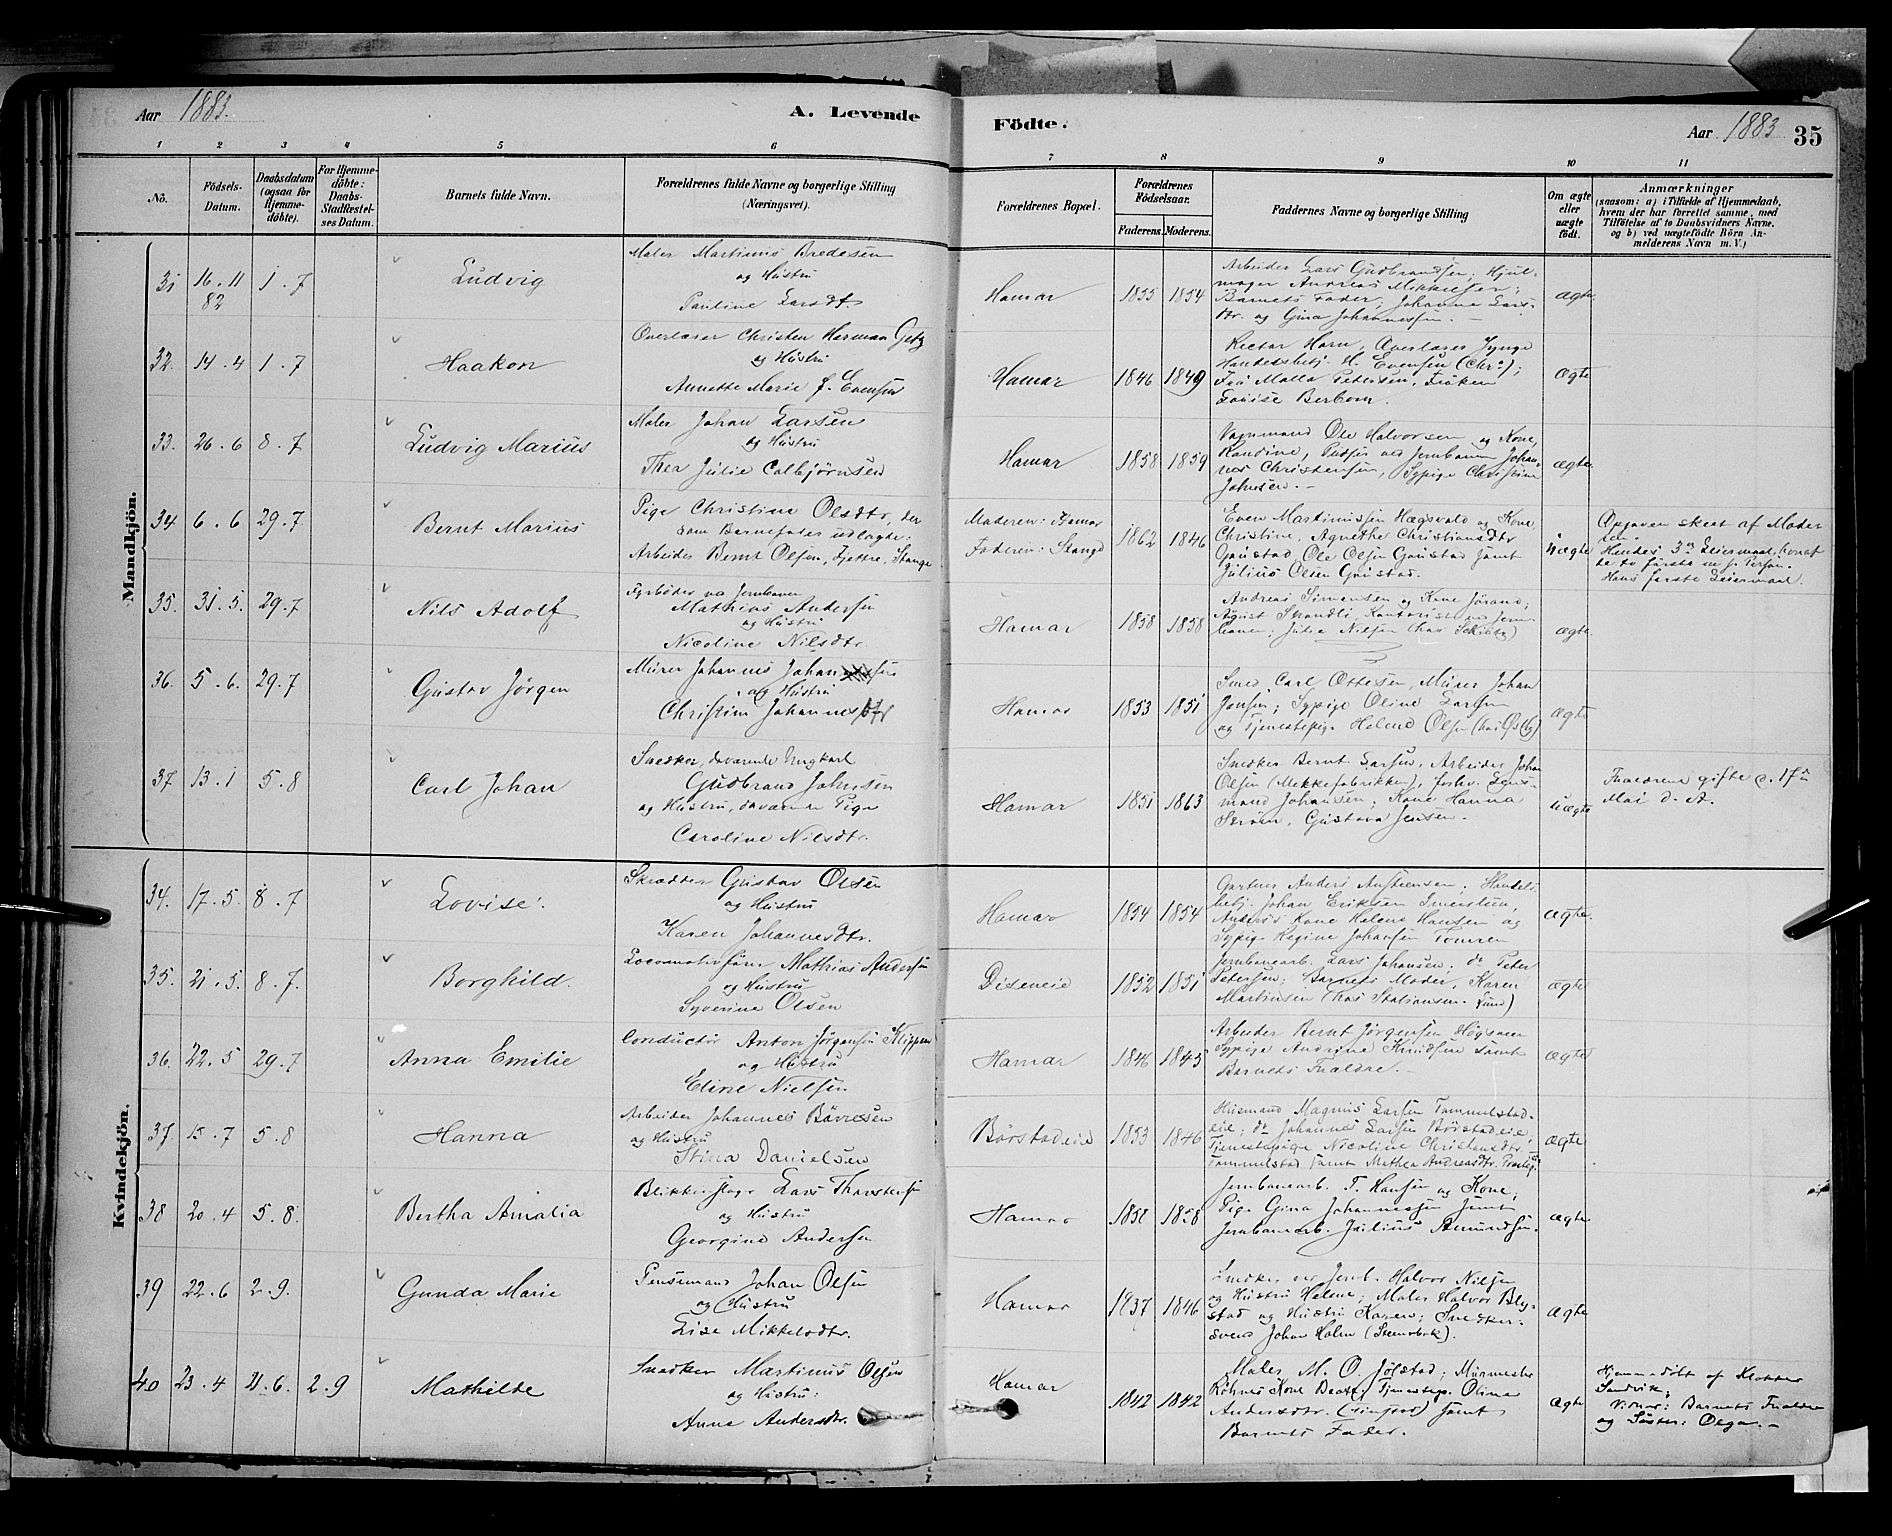 Aar 1883.
A. Levende
Födte.
Aar 1883
35
1 2 3 4 5 6 7 8 9 10 11
No.
Födsels-Datum.
Daabsdatum (ogsaa for Hjemme-döbte).
For Hjemme-döbte: Daabs-Stadfæstel-ses Datum.
Barnets fulde Navn.
Forældrenes fulde Navne og borgerlige Stilling (Næringsvei).
Forældrenes Bopæl.
Forældrenes Födselsaar.
Faderens. Moderens.
Faddernes Navne og borgerlige Stilling
Om ægte eller uægte födt.
Anmærkninger
(saasom: a) i Tilfælde af Hjemmedaab,
hvem der har forrettet samme, med
Tilföielse af to Daabsvidners Navne.
og b) ved uægtefödte Börn An-
melderens Navn m. V.)
Mandkjön.
31 16.11 82 1.7 Ludvig
Maler Martinus Bredesen
og Hustru
Pauline Larsdt.
Hamar 1855 1854
Arbeider Lars Gudbrandsen; Hjul-
mager Andreas Mikkelsen;
Barnets Fader; Johanna Lars-
dtr. og Gina Johannessen. —
ægte
32. 14.4 1.7 Haakon
Overlærer Christen Herman Getz
og Hustru
Annette Marie f. Evensen
Hamar 1846 1849
Rector Horn, Overlærer Jynge
Handelsbetj. H. Evensen (Chr.a);
Frü Malla Petersen, Frøken
Louise Berbom.
ægte
33. 26.6 8.7 Ludvig Marius
Maler Johan Larsen
og Hustru
Thea Julie Colbjørnsen
Hamar 1858 1859
Vognmand Ole Halvorsen og Kone,
Randine, Pudser ved Jernbanen Johan-
nes Christensen, Sypige Christine
Johnsen. —
ægte
34 6.6 29.7 Bernt Marius
Pige Christine Olsdtr, der
som Barnefader udlagte:
Arbeider Bernt Olsen, Tjettre, Stange
Moderen: Hamar
Faderen: Stange
1862 1846
Even Martinussen Hægsvold og Kone
Christine, Agnethe Christiansdtr
Gaustad, Ole Olsen Gaustad samt
Julius Olsen Gaustad.
uægte
Opgaven skeet af Moder
en.
Hendes 3die Leiermaal,
de to første m. s. Person.
Hans første Leiermaal.
35. 31.5. 29.7 Nils Adolf
Fyrbøder va Jernbanen
Mathias Andersen
og Hustru
Nicoline Nilsdtr.
Hamar 1858 1858
Andreas Simensen og Kone Jørand;
August Strandli, Kontorist va Jern-
banen; Julie Nilsen (hos Schiøtz)
ægte
36. 5.6. 29.7 Gustav Jörgen
Murer Johannes Johansen
og Hustru
Christine Johannesdtr
Hamar 1853 1851
Smed Carl Ottesen, Murer Johan
Jensen; Sypige Oline Larsen
og Tjenestepige Helene Olsen (hos Østby)
ægte
37 13.1 5.8 Carl Johan
Snedker, daværende Ungkarl
Gudbrand Johnsen
og Hustru, daværen. Pige
Caroline Nilsdtr.
Hamar 1851 1863
Snedker Bernt Larsen, Arbeider Johan
Olsen (Mekkefabrikken), forhv. Lens-
mand Johansen; Kone Hanna
Strøm, Gustava Jensen.
uægte
Forældrene gifte c. 17de
Mai d. A.
Kvindekjön.
34. 17.5. 8.7 Lovise.
Skrædder Gustav Olsen
og Hustru
Karen Johannesdtr.
Hamar 1854 1854
Gartner Anders Austensen, Handels
betj. Johan Eriksen
Anders's Kone Helene Hansen og
Sypige Regine Johansen Tomren
ægte.
35. 21.5. 8.7. Borghild.
Locomotivfører Mathias Andersen
og Hustru
Syverine Olsen
Diseneie 1852 1851
Jernbanearb. Lars Johansen; do Peter
Petersen; Barnets Moder, Karen
Martinsen (hos Stationsm. Lund)
ægte
36. 22.5 29.7 Anna Emilie
Conductør Anton Jørgensen Klippen
og Hustru
Eline Nielsen
Hamar 1846 1845
Arbeider Bernt Jørgensen
Sypige Andrine Knudsen samt
Barnets Forældre. —
ægte
37 15.7 5.8 Hanna
Arbeider Johannes Bövresen
og Hustru
Stina Danielsen
Börstadeie 1853 1846
Husmand Magnus Larsen Tommelstad-
eie; do Johannes Larsen Børstadeie,
Tjenestepige Nicoline Christiansdtr.
Tommelstad samt Mathea Andreasdtr.
ægte
38 20.4 5.8. Bertha Amalia
Blikkenslager Lars Thorstensen
og Hustru
Georgine Andersen
Hamar 1858 1858
Jernbanearb. T. Hansen og Kone,
Pige Gina Johannessen samt
Jernbanearb. Julius Amundsen.
ægte
39 22.6 2.9. Gunda Marie
Pensemand Johan Olsen
og Hustru
Lise Mikkelsdtr.
Hamar 1837 1846
Snedker ved Jernb. Halvor Nilsen
og Hustru Helene; Maler Halvor Bly-
stad og Hustru Karen; Snedker-
svend Johan Holm (Stensbak).
ægte
40 23.4 21.6. 2.9 Mathilde
Snedker Martinus Olsen
og Hustru:
Anne Andersdtr.
Hamar 1842 1842
Maler M. O. Jølstad; Murmester
Röhnes Kone Tjenestep. Olina
Andersdtr. samt
Barnets Fader.
ægte
Hjemmedöbt af Klokker
Sandvik;
Vidner: Barnets Forældre
og Søster: Olga. —